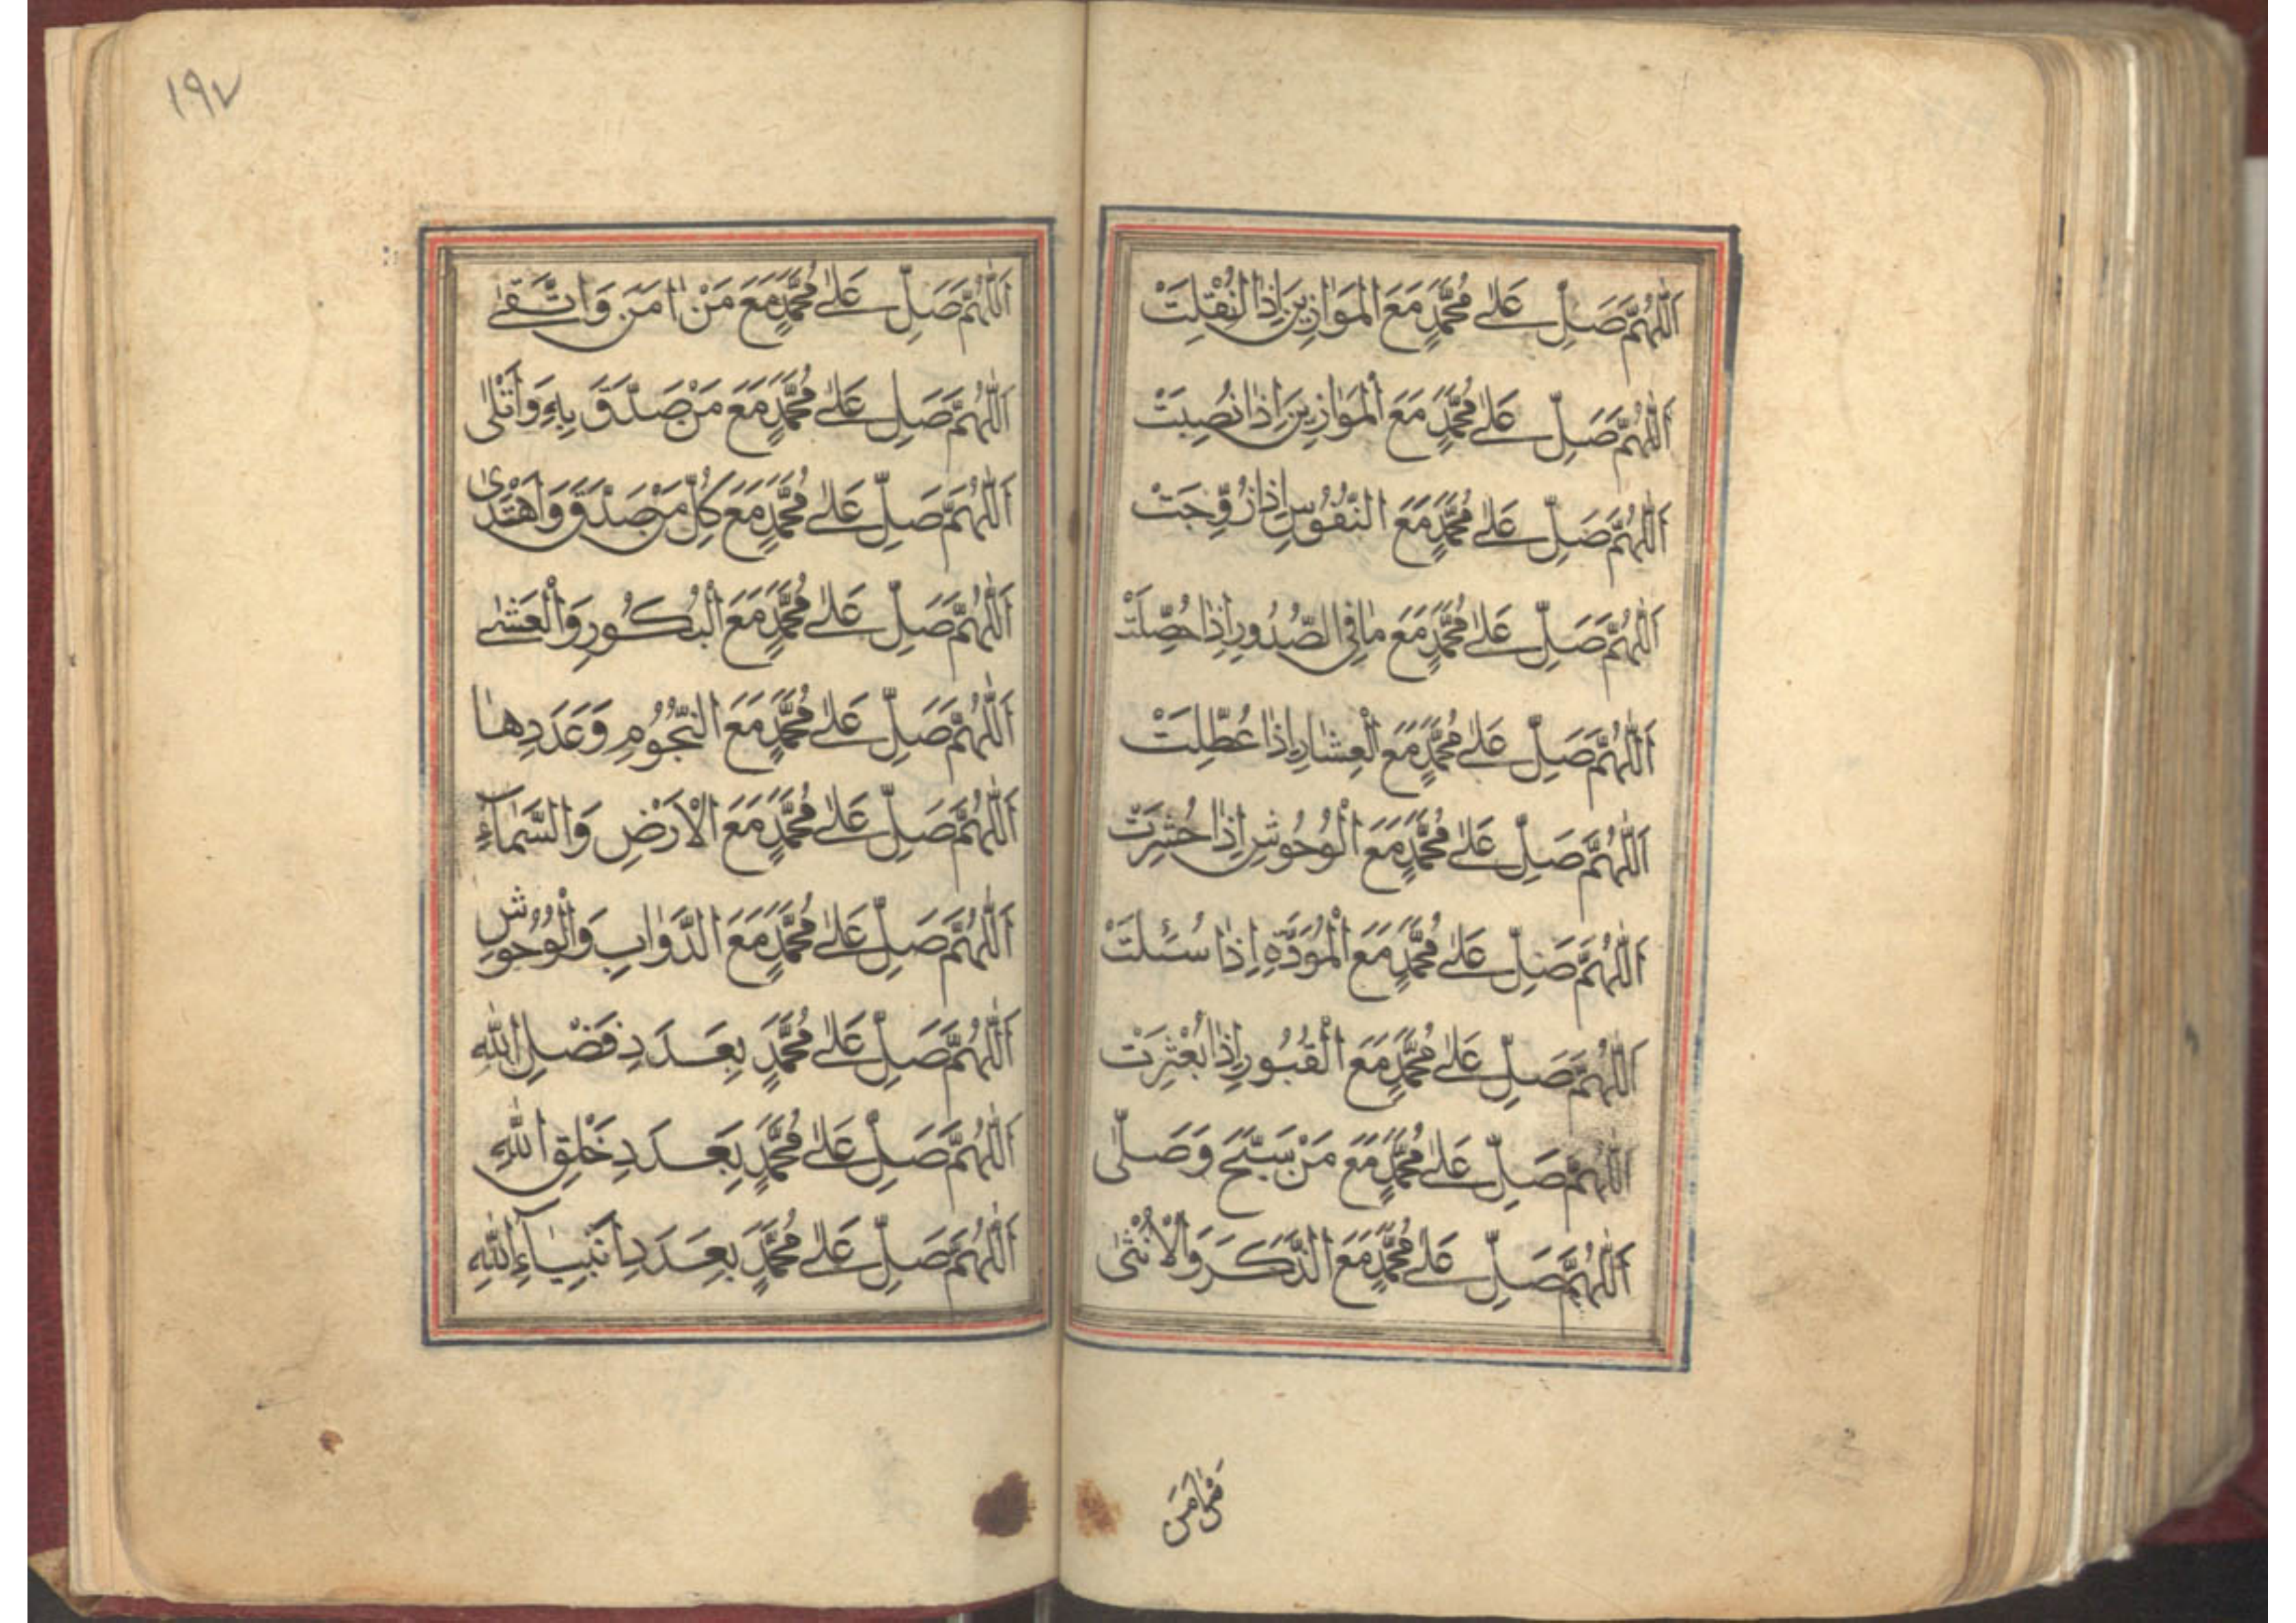 اَللّٰهُمَّ صَلِّ عَلٰى مُحَمَّدٍ مَعَ الْمَوَازِينَ اِذَا
اَللّٰهُمَّ صَلِّ عَلٰى مُحَمَّدٍ مَعَ الْمَوَازِينَ اِذَا نُصِبَتْ
اَللّٰهُمَّ صَلِّ عَلٰى مُحَمَّدٍ مَعَ النُّفُوسِ اِذَا زُوِّجَتْ
اَللّٰهُمَّ صَلِّ عَلٰى مُحَمَّدٍ مَعَ مٰا فِى الصُّدُورِ اِذٰا حُصِّلَتْ
اَللّٰهُمَّ صَلِّ عَلٰى مُحَمَّدٍ مَعَ الْعِشٰارِ اِذٰا عُطِّلَتْ
اَللّٰهُمَّ صَلِّ عَلٰى مُحَمَّدٍ مَعَ الْوُحُوشِ اِذٰا حُشِرَتْ
اَللّٰهُمَّ صَلِّ عَلٰى مُحَمَّدٍ مَعَ الْمُوَدَّةِ اِذٰا سُئِلَتْ
اَللّٰهُمَّ صَلِّ عَلٰى مُحَمَّدٍ مَعَ الْقُبُورِ اِذٰا بُعْثِرَتْ
اَللّٰهُمَّ صَلِّ عَلٰى مُحَمَّدٍ مَعَ مَنْ سَبَّحَ وَصَلّٰى
اَللّٰهُمَّ صَلِّ عَلٰى مُحَمَّدٍ مَعَ الذَّكَرَ وَالْاُنْثٰى
١٩٧
اَللّٰهُمَّ صَلِّ عَلٰى مُحَمَّدٍ مَعَ مَنْ اٰمَنَ وَاتَّقٰى
اَللّٰهُمَّ صَلِّ عَلٰى مُحَمَّدٍ مَعَ مَنْ صَدَّقَ بِهِ
اَللّٰهُمَّ صَلِّ عَلٰى مُحَمَّدٍ مَعَ كُلِّ مَنْ صَدَّقَ وَاهْتَدٰى
اَللّٰهُمَّ صَلِّ عَلٰى مُحَمَّدٍ مَعَ الْبُكُورِ وَالْعَشٰى
اَللّٰهُمَّ صَلِّ عَلٰى مُحَمَّدٍ مَعَ النُّجُومِ وَعَدَدِهٰا
اَللّٰهُمَّ صَلِّ عَلٰى مُحَمَّدٍ مَعَ الْاَرْضِ وَالسَّمٰآءِ
اَللّٰهُمَّ صَلِّ عَلٰى مُحَمَّدٍ مَعَ الدَّوٰابِ وَالْوُحُوشِ
اَللّٰهُمَّ صَلِّ عَلٰى مُحَمَّدٍ بِعَدَدِ فَضْلِ اللّٰهِ
اَللّٰهُمَّ صَلِّ عَلٰى مُحَمَّدٍ بِعَدَدِ خَلْقِ اللّٰهِ
اَللّٰهُمَّ صَلِّ عَلٰى مُحَمَّدٍ بِعَدَدِ اَنْبِيٰآءِ اللّٰهِ